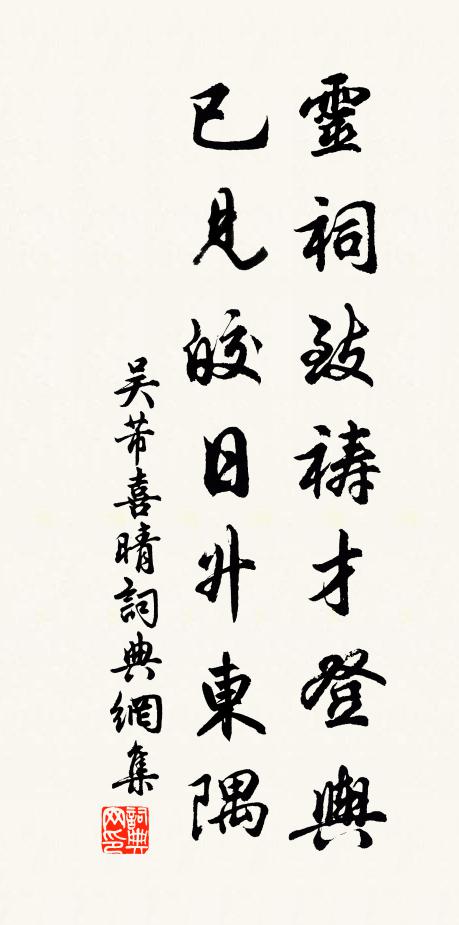 靈祠致祷才登輿
已見皎日升東隅
吴芾喜晴詞典網集
詞典网印